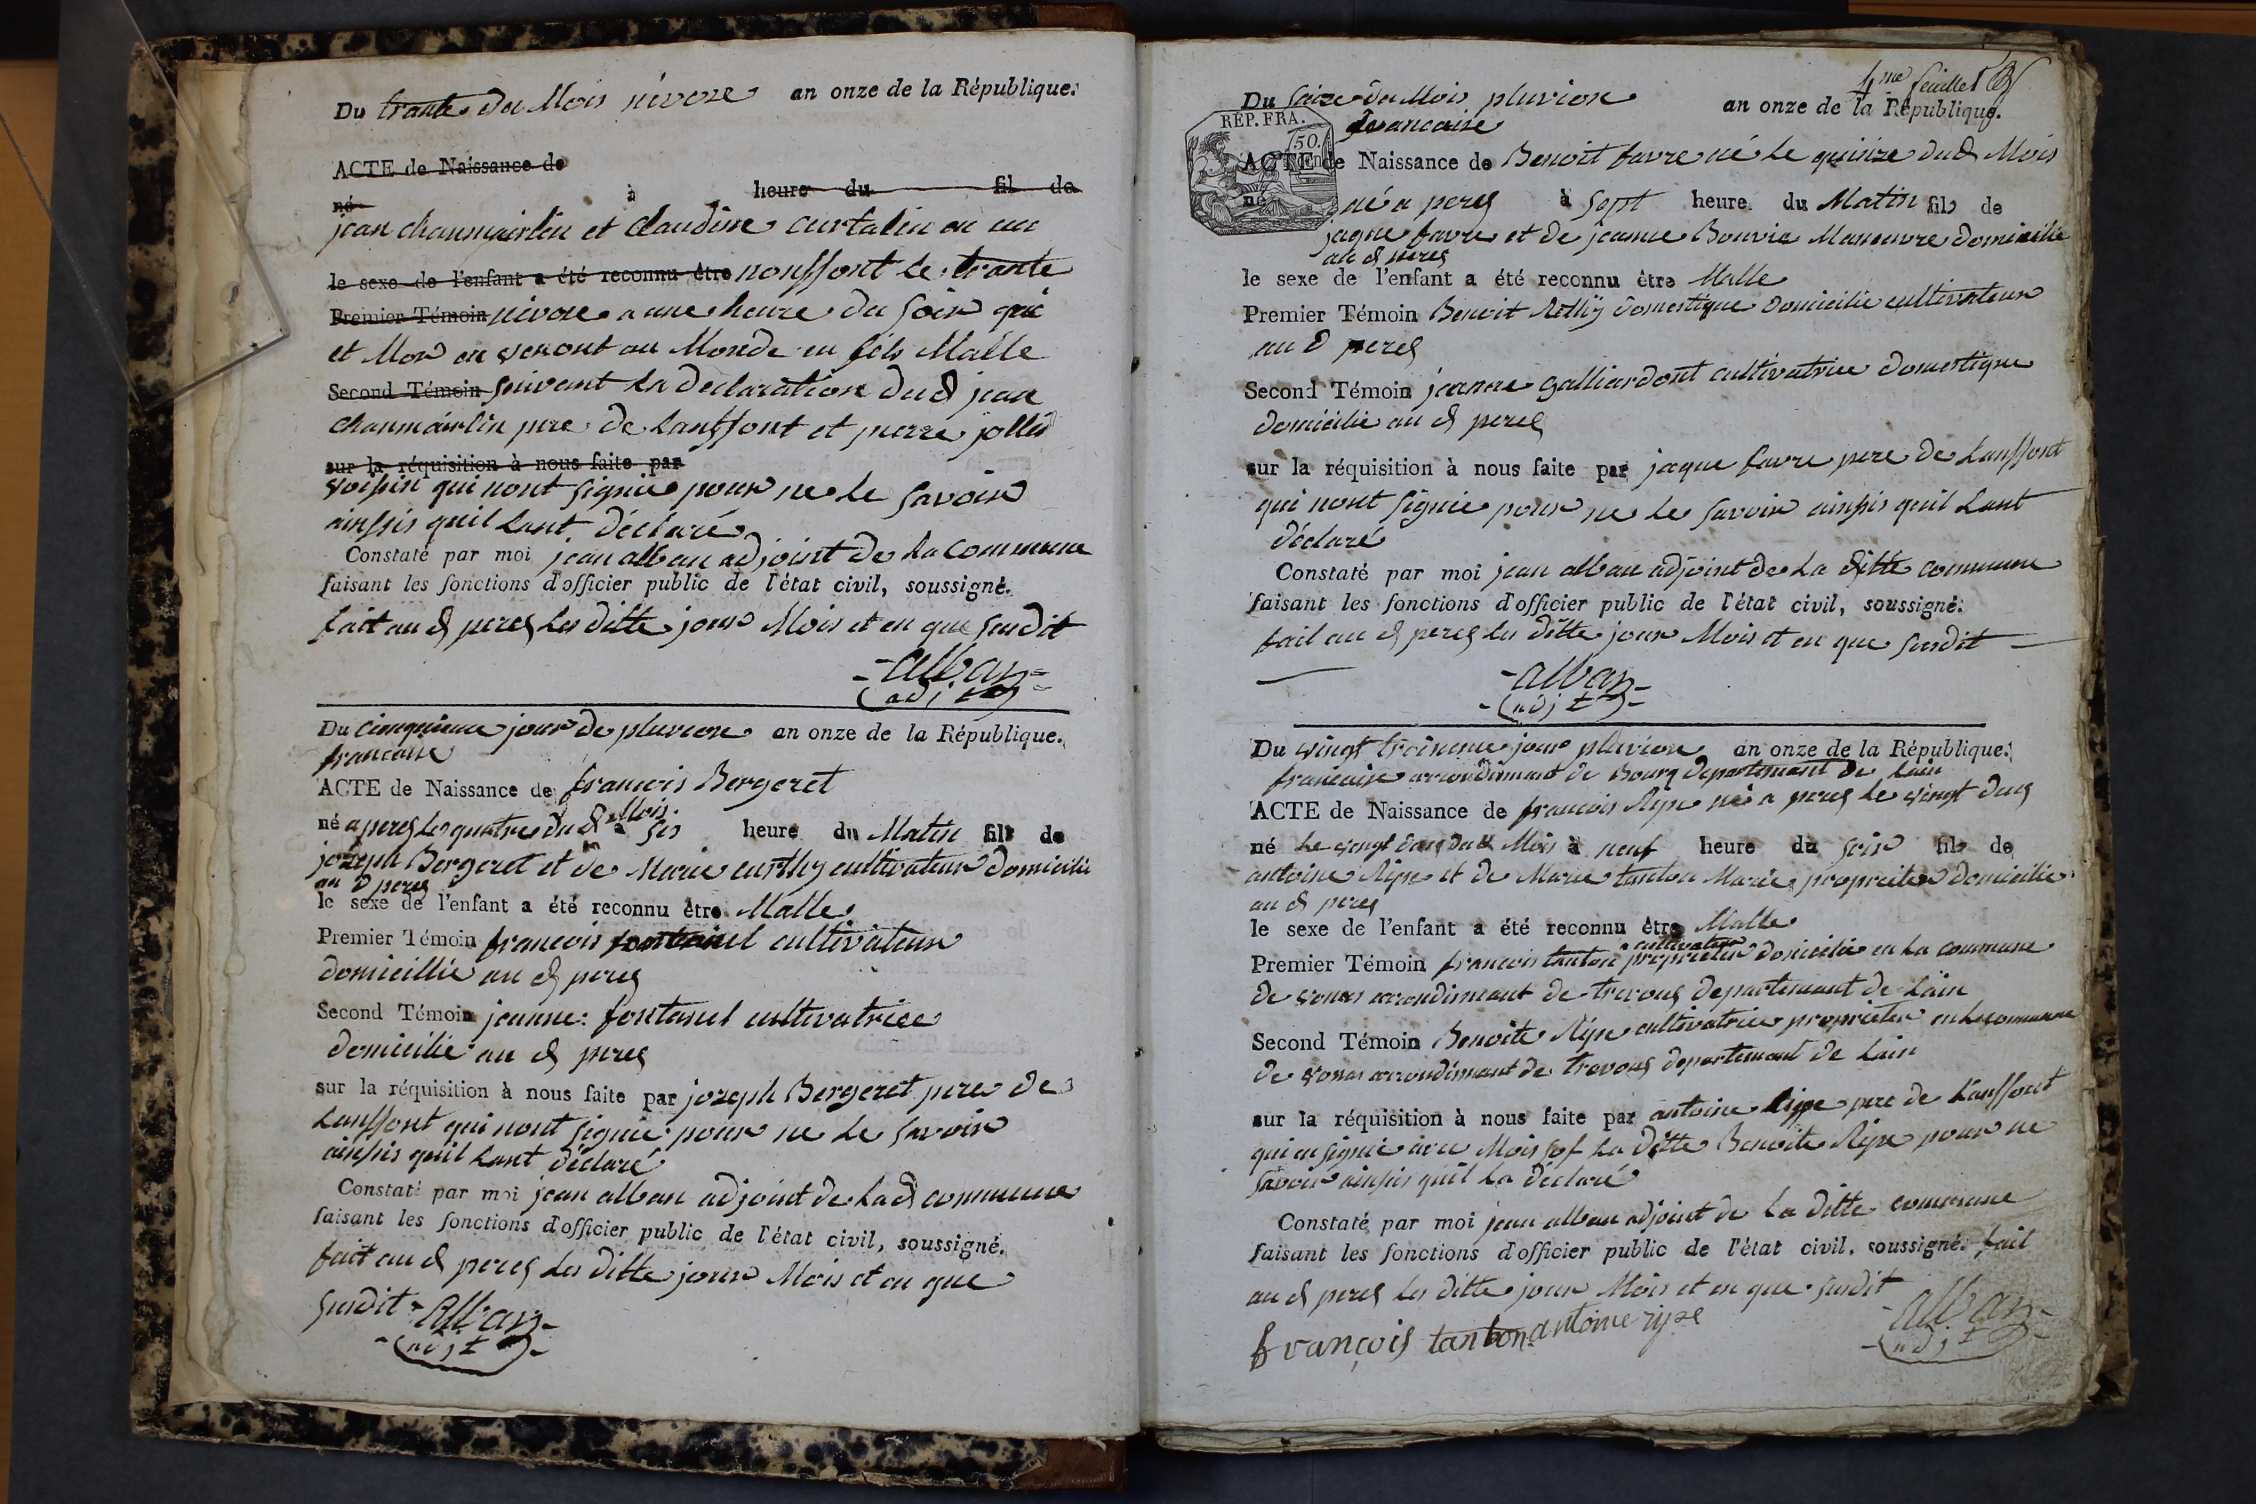 Du trante du Mois nivose an onze de la République.
ACTE de Naissance de
né à heure du fil de
jean chanmairlin et Claudine curtalin on eu
le sexe de l'enfant a été reconnu être nonffont le trante
Premier Témoin nivose a une heure du soir qui
et Mor en venont au Monde un fils Malle
Second Témoin suivant la déclaration dud jean
chanmairlin pere de lanffont et pierre jollid
sur la réquisition à nous faite par
voissin qui nont signie pour ne le savoir
ainssis quil lant déclaré
Constaté par moi jean alban adjoint de la commune
faisant les fonctions d'officier public de l'état civil, soussigné.
fait au d perez les ditte jour Mois et en que susdit
-alban-
(adjt)
Du cinquieme jour de pluviose an onze de la République.
francaise
ACTE de Naissance de francois Bergeret
né a perez les quatre du d Mois à sis heure du Matin fils de
jozeph Bergeret et de Marie curthy cultivateur domicilie
au d perez
le sexe de l'enfant a été reconnu être Malle
Premier Témoin francois cultivateur
domicillie au d perez
Second Témoin jeanne: fontanel cultivatrice
domicilie au d perez
sur la réquisition à nous faite par jozeph Bergeret pere de
lanffont qui nont signie pour ne le savoir
ainssis quil lant déclaré
Constaté par moi jean alban adjoint de la d commune
faisant les fonctions d'officier public de l'état civil, soussigné.
fait au d perez les ditte jour Mois et en que
susdit - alban-
-(adjt)-
4me feuillet
Du saize du Mois pluviose an onze de la République.
francaise
RÉP. FRA.
50.
ACTE de Naissance de Benoit favre né le quinze dud Mois
né né a perez à sept heure du Matin fils de
jaque favre et de jeanne Bouvie Maneuvre domicilie
au d perez
le sexe de l'enfant a été reconnu être Malle
Premier Témoin Benoit Rethy domestique domicilie cultivateur
au d perez
Second Témoin jeanne galliardont cultivatrice domestique
domicilie au d perez
sur la réquisition à nous faite par jaque favre pere de lanffont
qui nont signie pour ne le savoir ainssis quil lant
déclaré
Constaté par moi jean alban adjoint de la ditte commune
faisant les fonctions d'officier public de l'état civil, soussigné.
fait au d perez les ditte jour Mois et en que susdit
-alban-
-(adjt)-
Du vingt troiseme jour pluviose an onze de la République.
francaise arrondismant de Bourg departemant de lain
ACTE de Naissance de francois Ripe né a perez le vingt deus
né le vingt deus dud Mois à neuf heure du soir fils de
antoine Ripe et de Marie tanton Marié proprieter domicilie
au d perez
le sexe de l'enfant a été reconnu être Malle
cultivateur
Premier Témoin francois tanton proprieter domicilie en la commune
de vonas arrondismant de trevous departemant de lain
Second Témoin Benoite Ripe cultivatrice proprieter en la commune
de vonas arrondismant de trevous departemant de lain
sur la réquisition à nous faite par antoine Rippe pere de lanffont
qui en signie avec Mois sof la ditte Benoite Ripe pour ne
savoir ainssis quil la déclaré
Constaté par moi jean alban adjoint de la ditte commune
faisant les fonctions d'officier public de l'état civil, soussigné. fait
au d perez les ditte jour Mois et en que susdit
françois tanton antoine ripe
-alban-
-(adjt)-